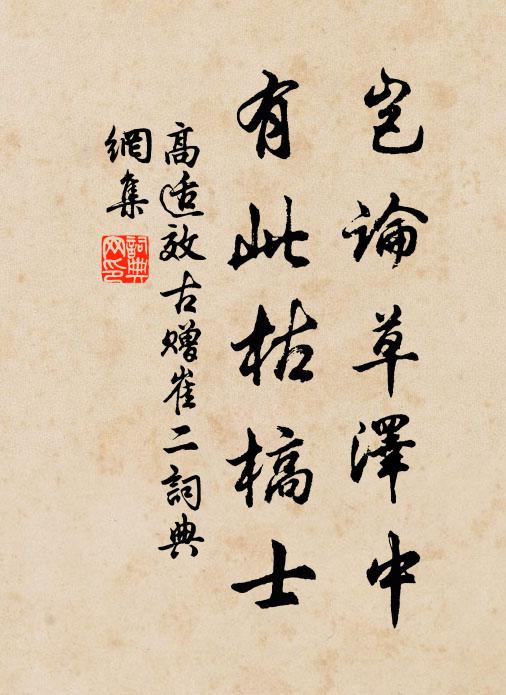 豈論草澤中
有此枯槁士
高适效古赠崔二詞典
網集
詞典
网印